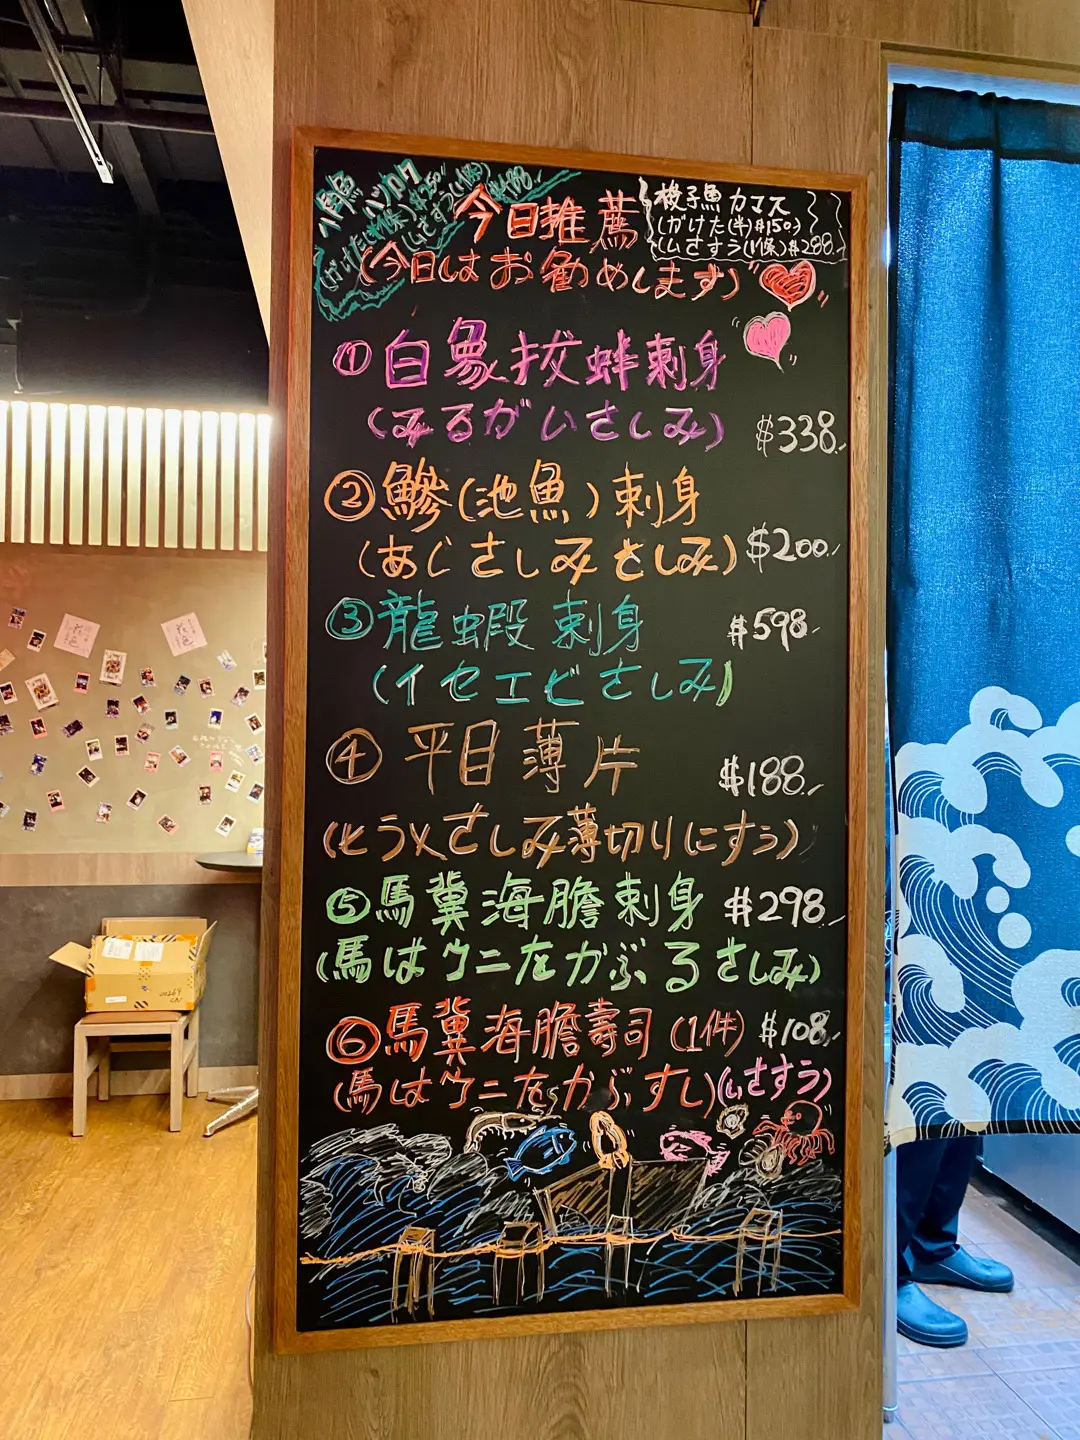 八角魚 ハッカク
$188
今日推薦
(今日はお勧めします)
梭子魚カマス
(かけた(半)$150)
(いさすう(1條)$288.
①白象拔蚌刺身
(みるがいさしみ)
$338.
②鰺(池魚)刺身
(あじさしみさしみ)
$200.
③龍蝦刺身
$598.
(イセエビさしみ)
④平目薄片
$188.
(ヒラメさしみ薄切りにすう)
⑤馬糞海膽刺身 $298.
(馬はウニをかぶるさしみ)
⑥馬糞海膽壽司(1件) $108.
(馬はウニをかぶすし)(いさすう)